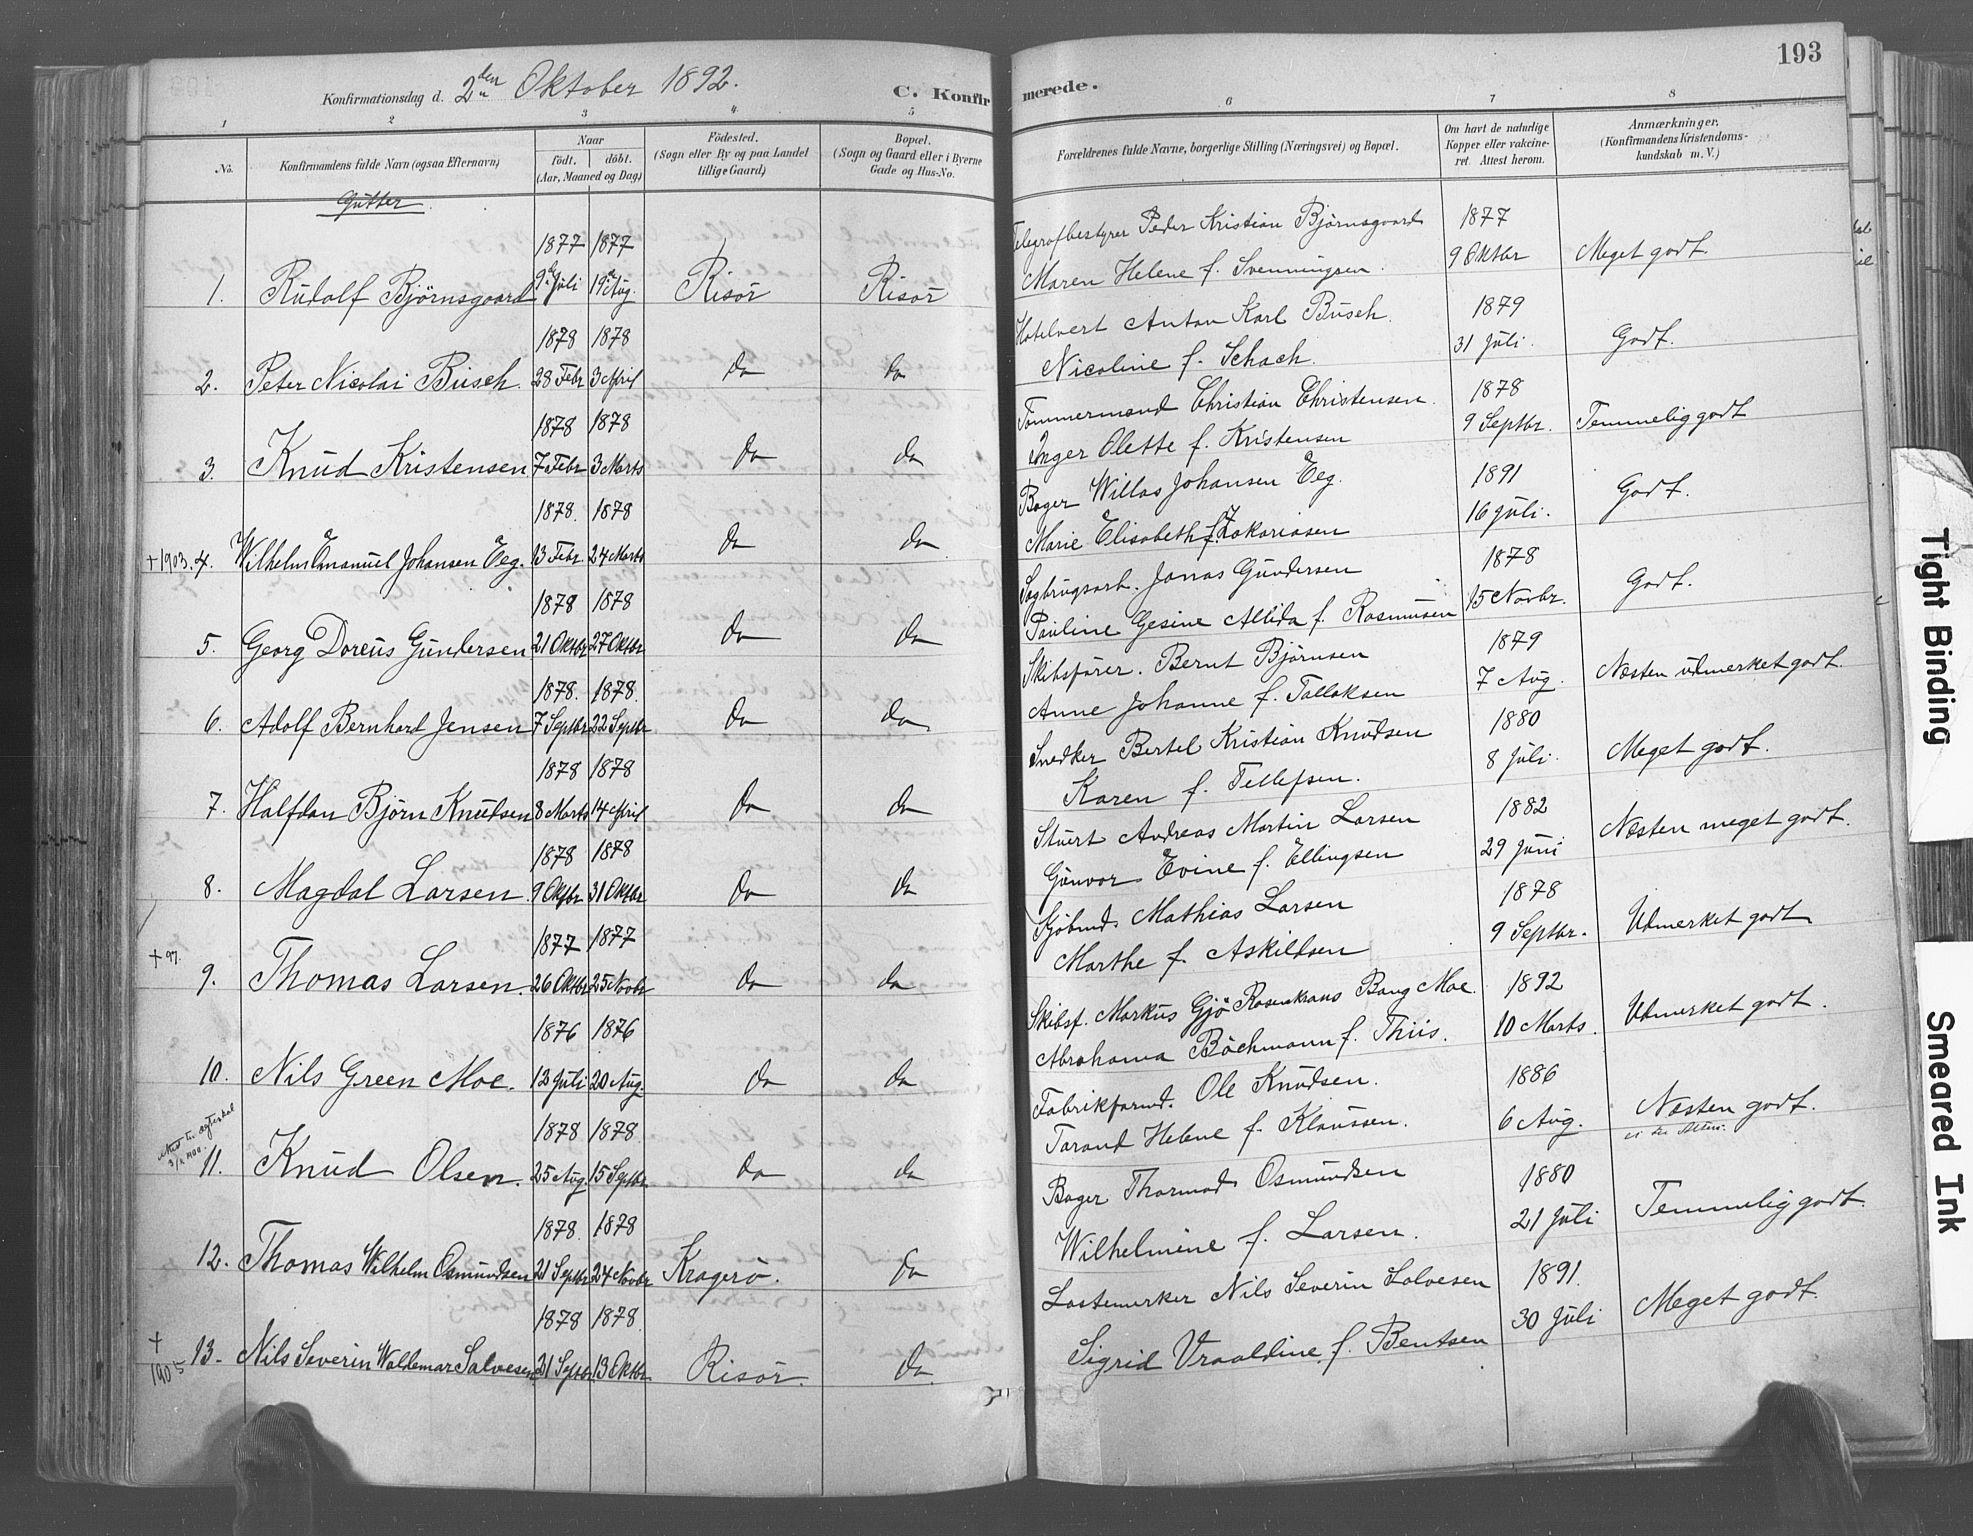 193
Konfirmationsdag d. 2den Oktober 1892.
C. Konfirmerede.
1 2 3 4 5 6 7 8
No.
Konfirmandens fulde Navn (ogsaa Efternavn)
Naar
födt. döbt.
(Aar, Maaned og Dag)
Födested.
(Sogn eller By og paa Landet
tillige Gaard)
Bopæl.
(Sogn og Gaard eller i Byerne
Gade og Hus-No.
Forældrenes fulde Navne, borgerlige Stilling (Næringsvei) og Bopæl.
Om havt de naturlige
Kopper eller vakcine-
ret. Attest herom.
Anmærkninger.
(Konfirmandens Kristendoms-
kundskab m. V.)
Gutter
1877 1877 Telegrafbestyrer Peder Kristian Bjørnsgaard 1877
1. Rudolf Bjørnsgaard 9de Juli 19de Aug. Risør Risør Maren Helene f. Svenningsen. 9 Oktbr Meget godt.
1878 1878 Hotelvert Anton Karl Busch. 1879
2. Peter Nicolai Busch. 28 Febr 3 April do do Nicoline f. Schach. 31 Juli. Godt.
1878 1878 Tømmermand Christian Christensen. 1878
3. Knud Kristensen. 7 Febr 3 Marts do do Inger Olette f. Kristensen 9 Septbr. Temmelig godt
1878. 1878 Bager Willas Johansen Eeg. 1891
+1903. 4. Wilhelm Emanuel Johansen Eeg. 13 Febr. 24 Marts do do Marie Elisabeth f. Zakariasen 16 Juli. Godt.
1878 1878 Sagbrugsarb. Jonas Gundersen 1878
5. Georg Doreus Gundersen 21 Oktbr 27 Oktbr do do Pauline Gesine Allida f. Rasmusen 15 Novbr. Godt.
1878. 1878. Skibsfører. Bernt Bjørnsen 1879
6. Adolf Bernhard Jensen 7 Septbr 22 Septbr do do Anne Johanne f. Tallaksen 7 Aug. Næsten udmerket godt.
1878 1878 Snedker Bertel Kristian Knudsen 1880
7. Halfdan Bjørn Knudsen 8 Marts 14 April do do Karen f. Tellefsen. 8 Juli. Meget godt.
1878 1878 Stuert Andreas Martin Larsen 1882
8. Magdal Larsen. 9 Oktbr 31 Oktbr do do Gunvor Evine f. Ellingsen 29 Juni Næsten meget godt.
1877 1877 Sjømd. Mathias Larsen 1878
+97. 9. Thomas Larsen. 26 Oktbr 25 Novbr do do Marthe f. Askildsen 9 Septbr. Udmerket godt
1876 1876 Skibsf. Markus Gjø Rosenkrans Bang Moe. 1892
10. Nils Green Moe. 12 Juli 20 Aug. do do Abrahama Bøchmann f. Thiis. 10 Marts. Udmerket godt.
1878 1878. Fabrikformd. Ole Knudsen. 1886
11. Knud Olsen. 25 Aug. 15 Septbr do do Tarand Helene f. Klaussen. 6 Aug. Næsten godt.
1878. 1878 Bager Thormod Osmundsen 1880
12. Thomas Wilhelm Osmundsen 21 Septbr 24 Novbr Kragerø. do Wilhelmine f. Larsen. 21 Juli Temmelig godt.
1878 1878. Lastemerker Nils Severin Salvesen 1891.
+1905 13. Nils Severin Waldemar Salvesen 21 Septbr. 13 Oktbr. Risør. do. Sigrid Vraaldine f. Bentsen 30 Juli Meget godt.
Tight Binding
Smeared Ink